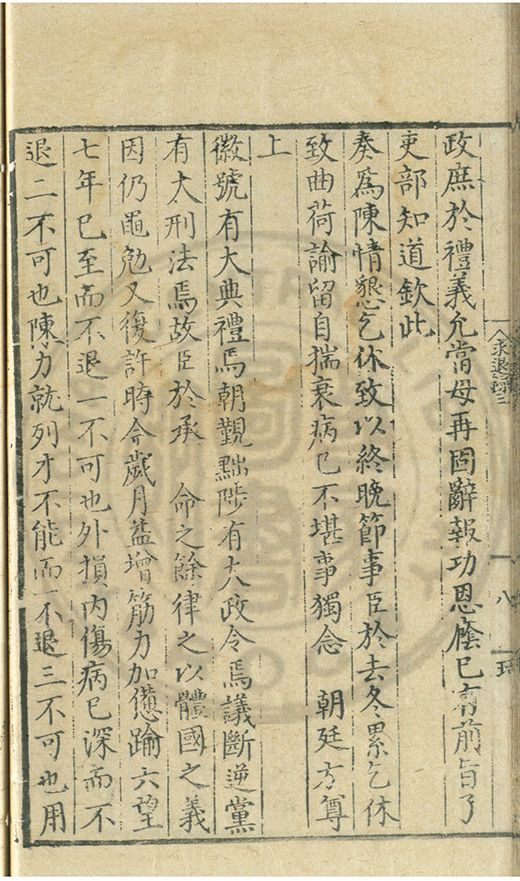 求退錄三
八
政庶於禮義允當毋再固辭報功恩廕已有前旨了
吏部知道欽此
奏爲陳情懇乞休致以終晚節事臣於去冬累乞休
致曲荷諭留自揣衰病已不堪事獨念 朝廷方尊
上
徽號有大典禮焉朝覲黜陟有大政令焉議斷逆黨
有大刑法焉故臣於承 命之餘律之以體國之義
因仍黽勉又復許時今歲月益增筋力加憊踰六望
七年已至而不退一不可也外損內傷病已深而不
退二不可也陳力就列才不能而不退三不可也用